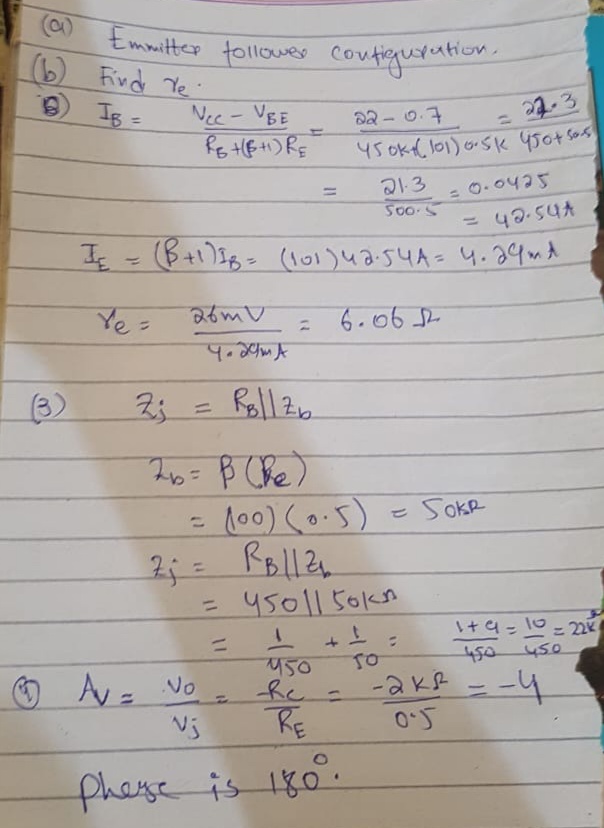 (a) Emmitter follower configuration.
(b) Find re.
IB = VCC - VBE / RB + (β+1) RE = 22 - 0.7 / 450k+(101)0.5k = 21.3 / 450+50.5
= 21.3 / 500.5 = 0.0425
= 42.54A
IE = (β+1)IB = (101)42.54A = 4.29mA
re = 26mV / 4.29mA = 6.06 Ω
(3) Zi = RB||Zb
Zb = β(Re)
= (100)(0.5) = 50kΩ
Zi = RB||Zb
= 450||50kΩ
= 1/450 + 1/50 = 1+9/450 = 10/450 = 22k
(4) Av = Vo/Vi = -RC/RE = -2kΩ/0.5 = -4
phase is 180°.